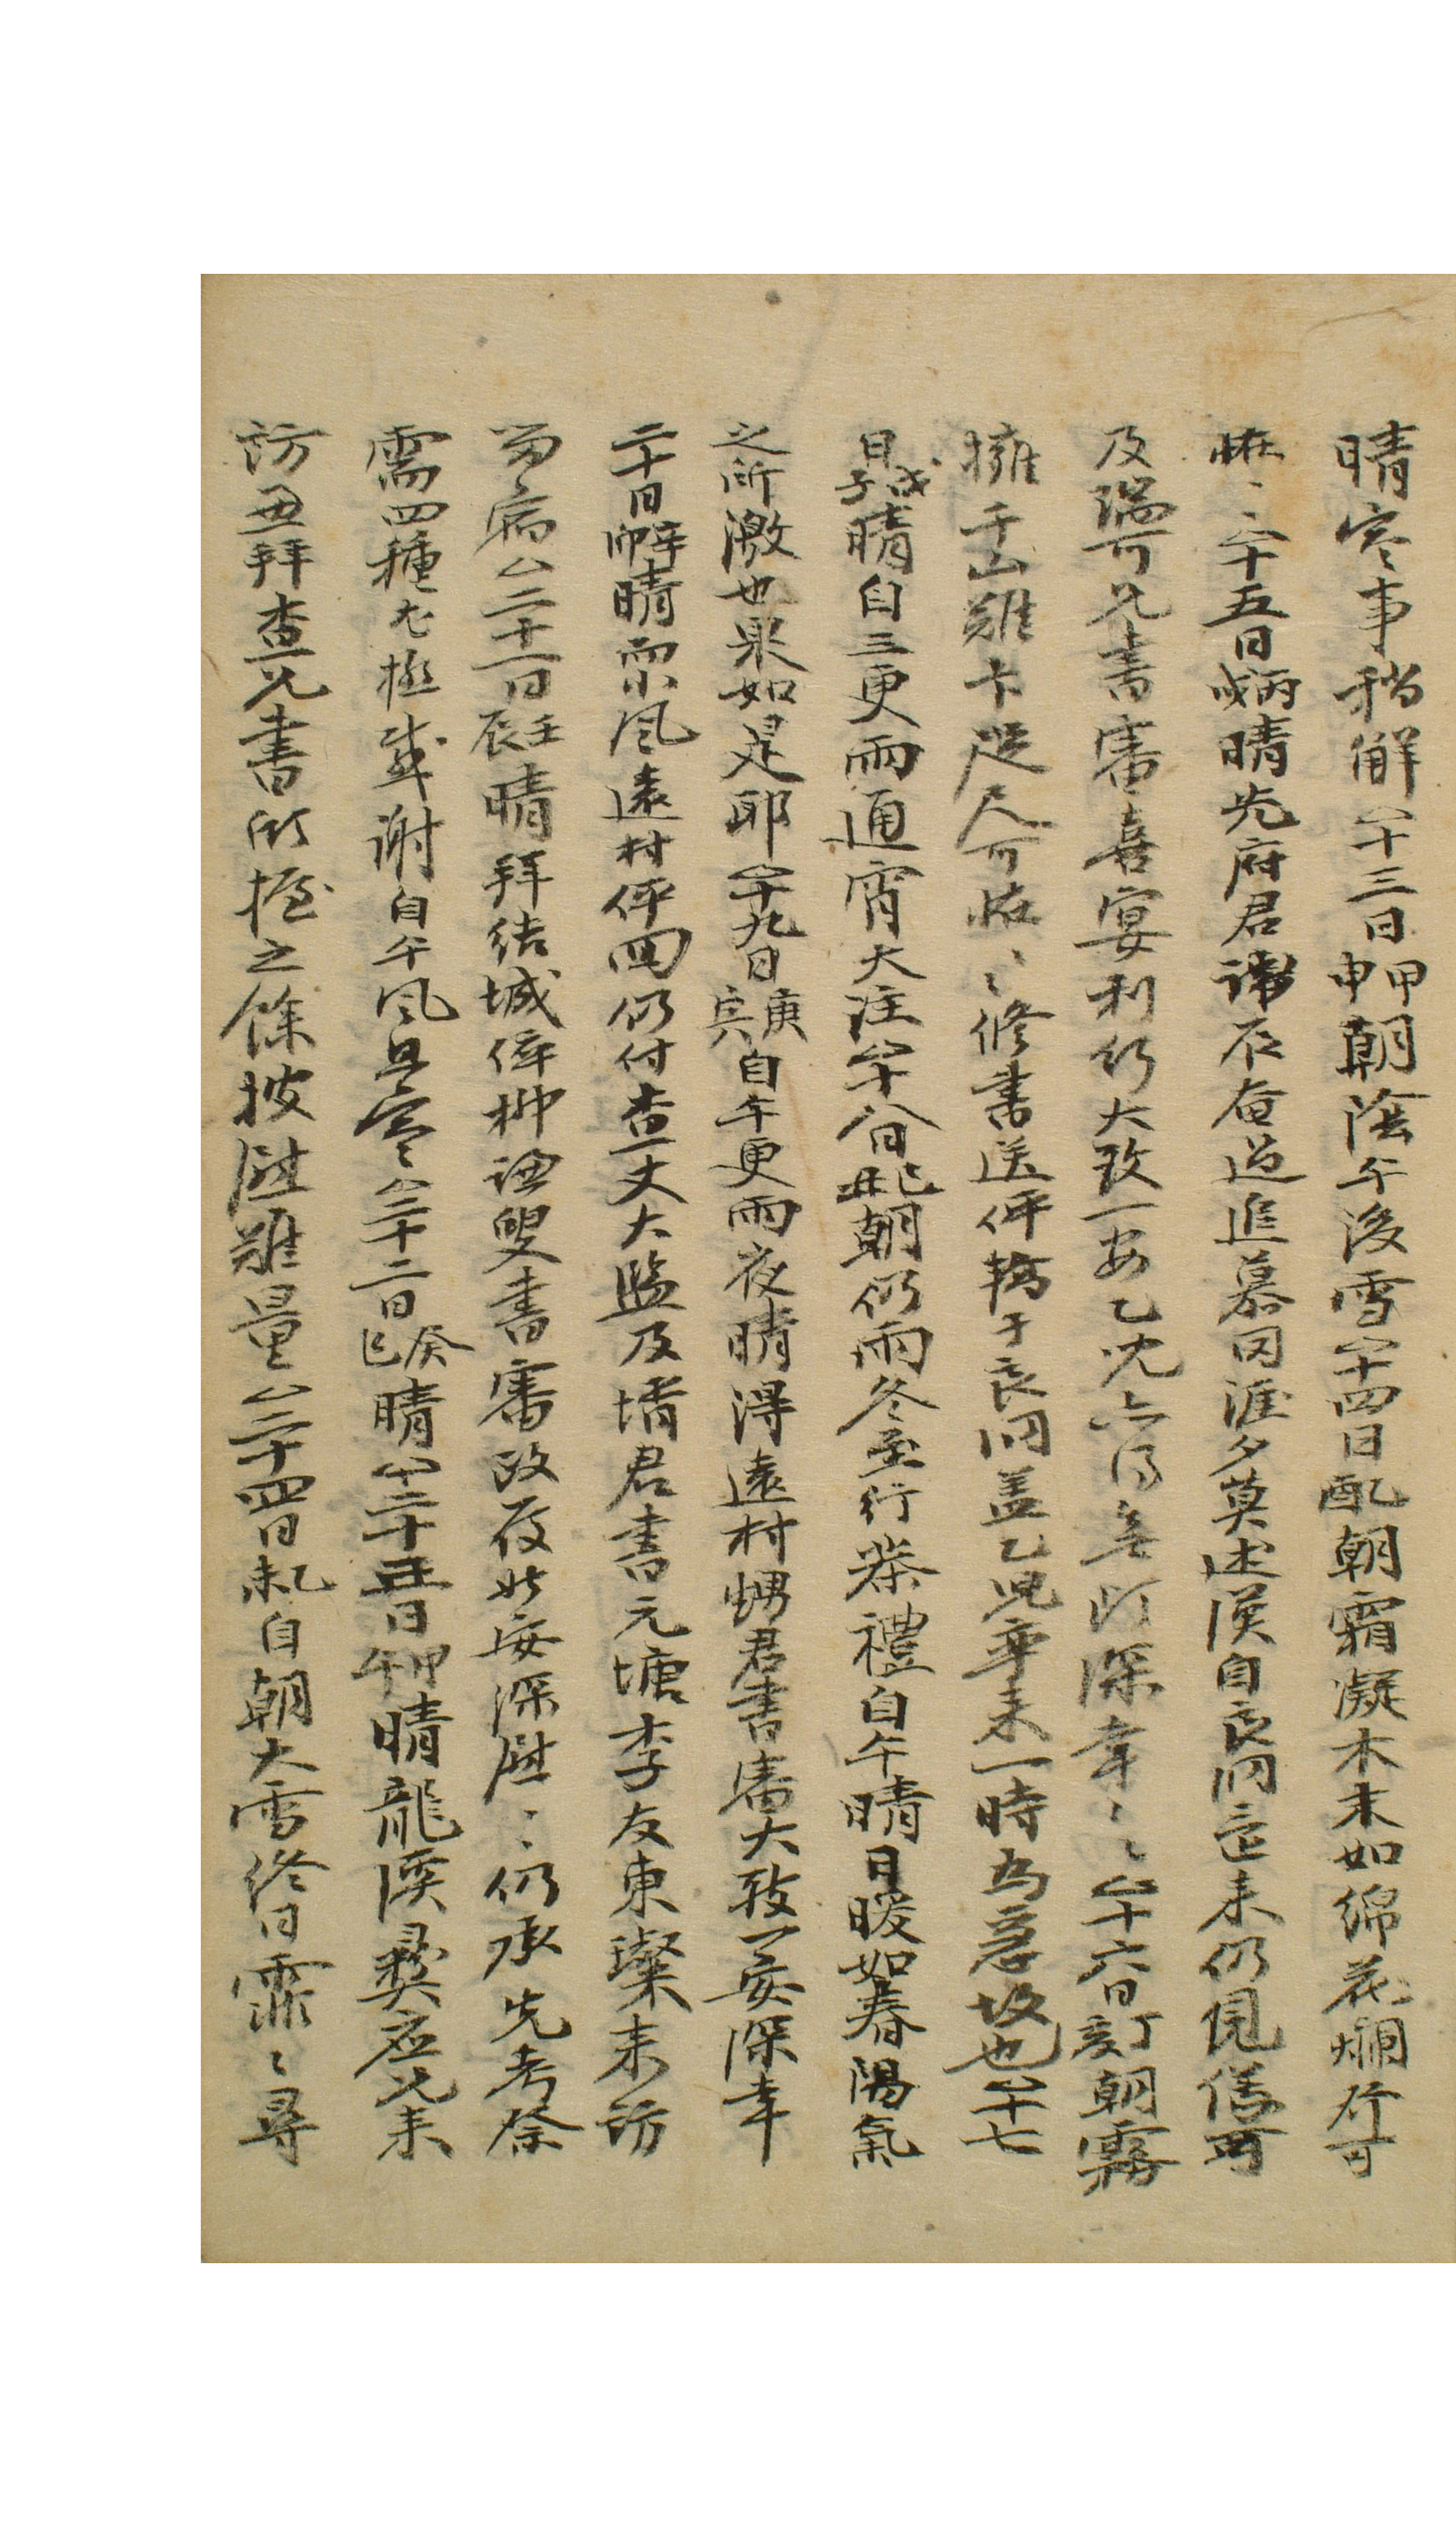 晴寒事稍解 十三日甲申朝陰午後雪 十四日乙酉朝霜凝木末如綿花爛行可
恠〻 十五日丙戌晴先府君諱辰奄過追慕罔涯夕莫述漢自良洞並來仍見
及瑞可兄書審喜宴利行大致一安乙児六得無深幸〻 十六日丁亥朝霧
擁千山難卞咫尺可恠〻修書送伻轎于良洞盖乙児率來一時爲急故也 十七
日戊子晴自三更雨通宵大注 十八日己丑朝仍雨冬至行茶禮自午晴日暖如春陽氣
之所激也果如是耶 十九日庚寅自午更雨夜晴得遠村甥君書審大致一安深幸
二十日辛卯晴而小風遠村伻回仍付査丈大監及壻君書元塘李友東璨來訪
病 二十一日壬辰晴拜結城倅柳叟書審政履安深慰〻仍承先考祭
需四種感謝自午風且寒 二十二日癸巳晴 二十三日甲午晴龍溪彛應兄來
訪丑拜査兄書披慰難量 二十四日乙未自朝大雪終日霏〻尋